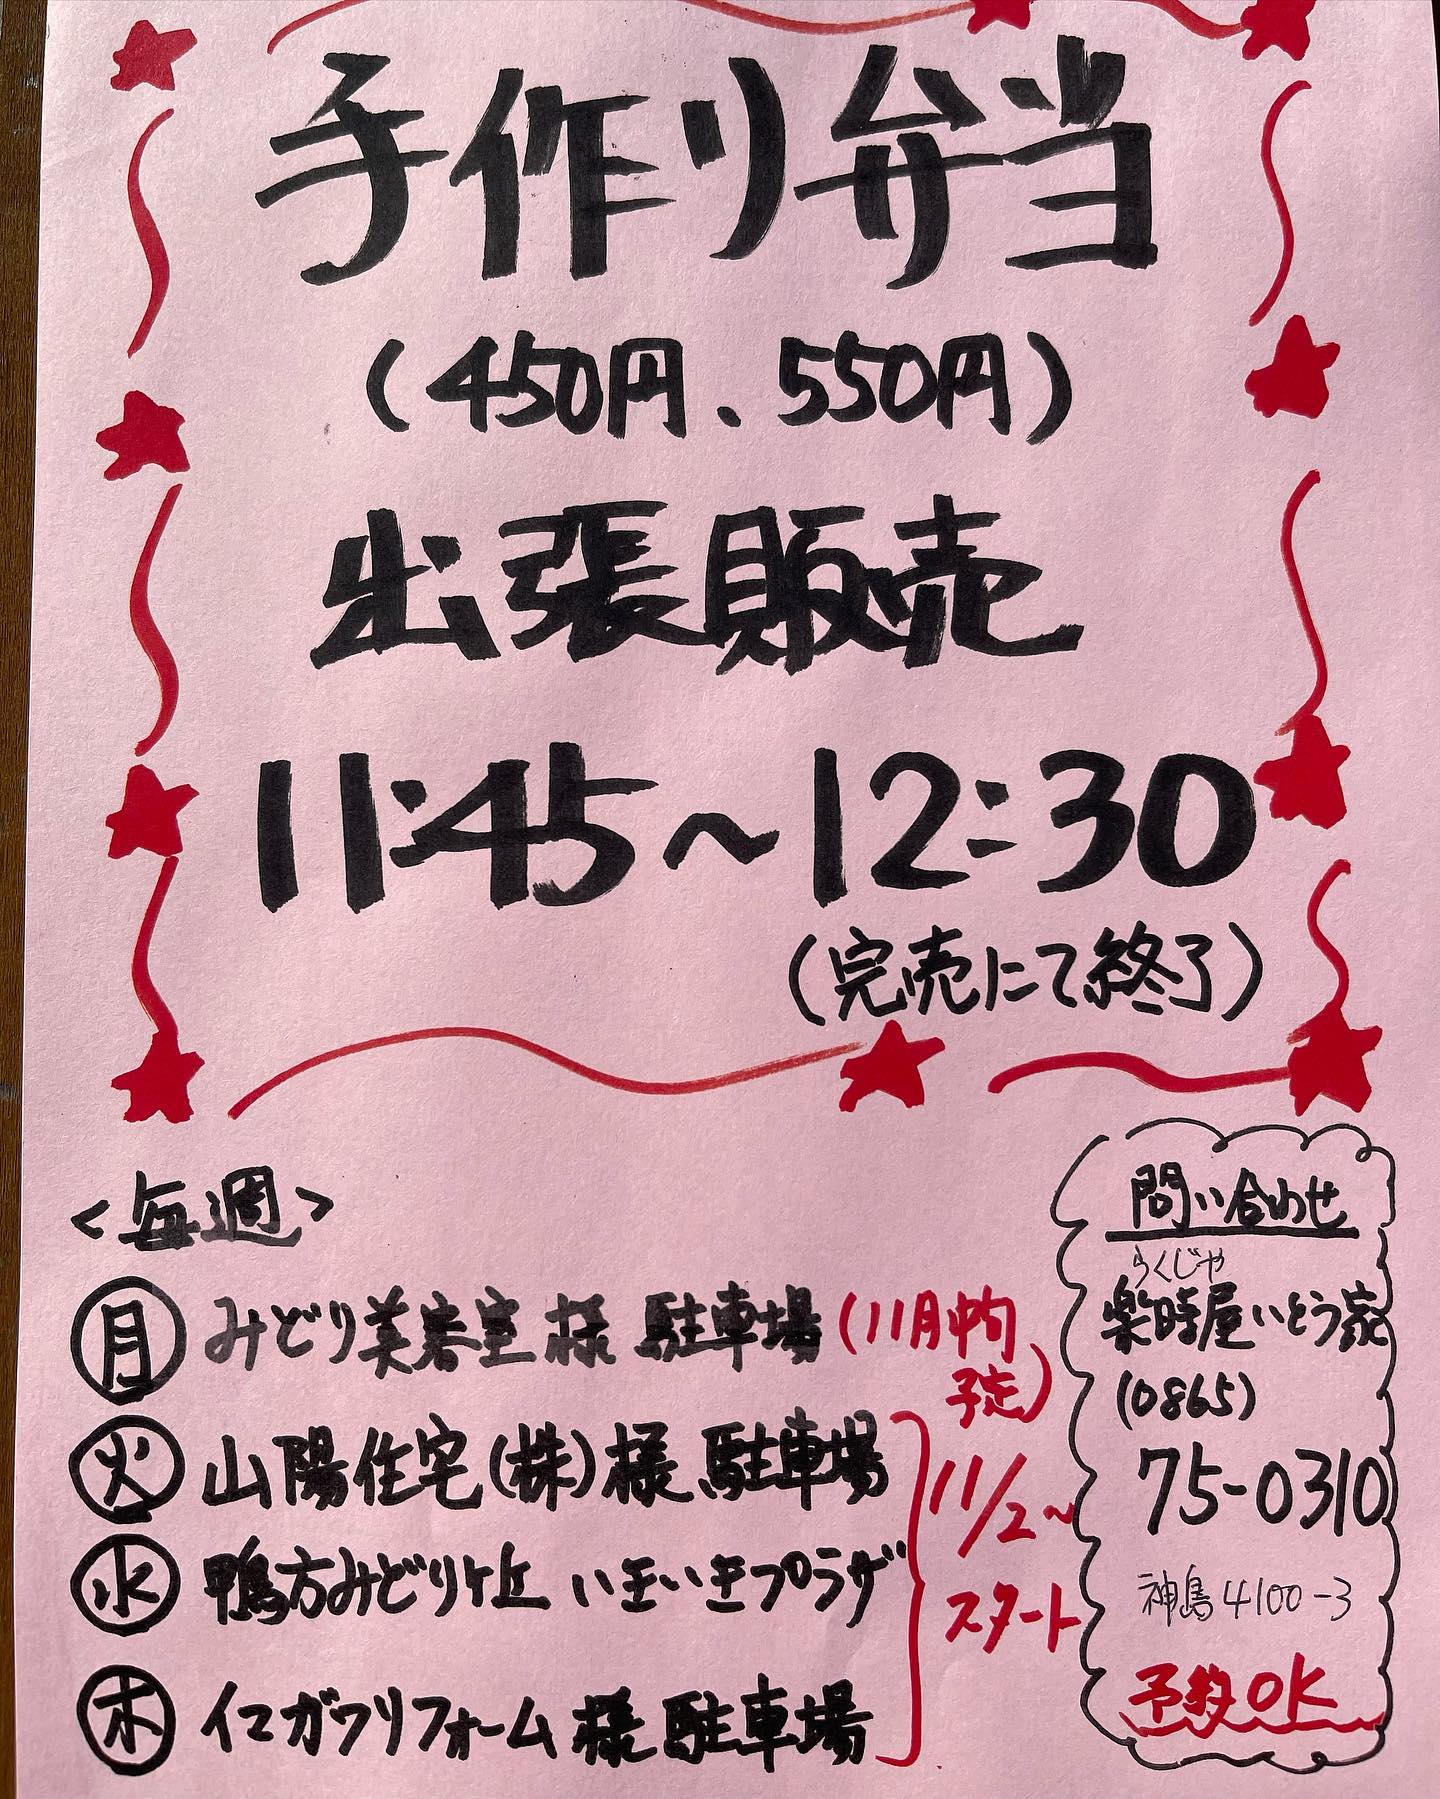 手作り弁当
(450円、550円)
出張販売
11:45～12:30
(完売にて終了)
<毎週>
月 みどり美容室様 駐車場(11月中旬
予定)
火 山陽住宅(株)様 駐車場
水 鴨方みどりヶ丘 いきいきプラザ
木 イマガワリフォーム様 駐車場
11/2～
スタート
問い合わせ
らくじや
楽時屋いとう家
(0865)
75-0310
神島4100-3
予約OK